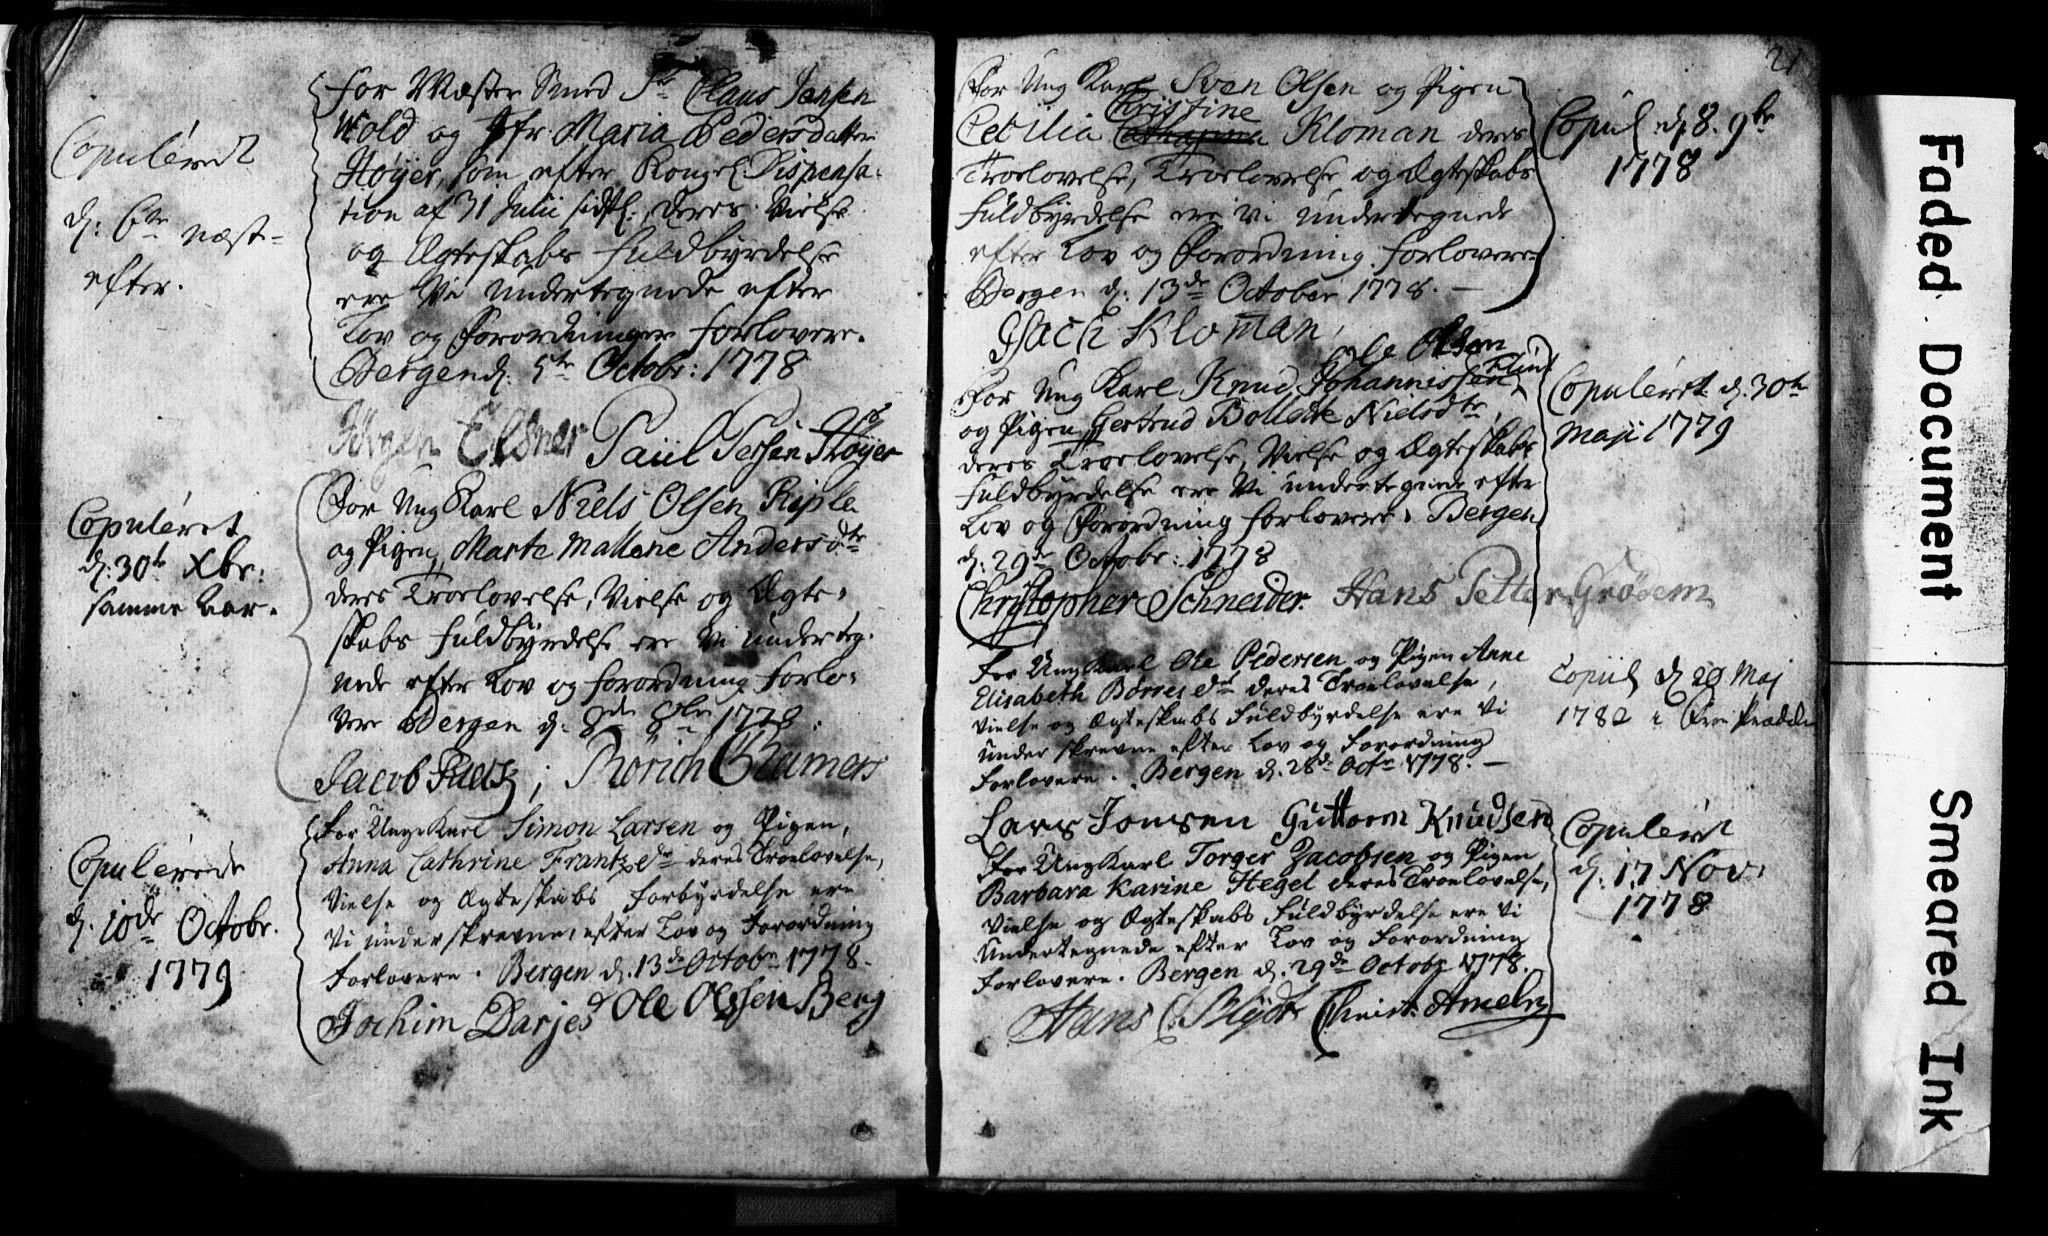 Copuléret
d: 6te næst-
efter.
For Mæster Smed Sr Claus Jensen
Wold og Jfr. Maria Pedersdatter
Høÿer, som efter Kongel: Dispensa-
tion af 31 Julii sidstl: deres Vielse
og Ægteskabs Fuldbÿrdelse
ere Vi underteignede efter
Lov og Forordninger Forlovere.
Bergen d: 5te Octobr: 1778
Jørgen Elsner Paul Høÿer
Copuléret
d: 30te Xbr:
samme Aar.
For Ung Karl Niels Olsen Riple
og Pigen Marte Mallene Andersdtr
deres Troelovelse, Vielse og Ægte-
skabs Fuldbÿrdelse ere Vi underteg-
nede efter Lov og Forordning Forlo-
vere Bergen d: 8de 8br 1778.
Jacob ; Rørich Cramers
Copulérede
d. 10de Octobr.
1779
For Unge Karl Simon Larsen og Pigen,
Anna Cathrine Frantzedr deres Troelovelse,
Vielse og Ægteskabs Forbÿrdelse ere
Vi underskrevne, efter Lov og Forordning
Forlovere. Bergen d. 13de Octobr 1778.
Jochim Darjes Ole Olssen Berg
21
For Ung Karl Sven Olsen og Pigen
Christine
Cecilia Kloman deres
Troelovelse, Troelovelse og Ægteskabs
Fuldbÿrdelse ere Vi underteignede
efter Lov og Forordning Forlovere
Bergen d: 13de October 1778.
Isach Kloman, Ole Olsen
Copul d 8. 9br
1778
For Ung Karl Knud Johannissen Klin
og Pigen Gertrud Bollette Nielsdtr,
deres Troelovelse, Vielse og Ægteskabs
Fuldbÿrdelse ere Vi undertegnede efter
Lov og Forordning Forlovere. Bergen
d: 29de Octobr: 1778
Christopher Schneider. Hans Petter Grødem
Copuléret d. 30te
Maji 1779
For Ung Karl Ole Pedersen og Pigen Anne
Elisabeth Børresdtr deres Troelovelse,
Vielse og Ægteskabs Fuldbÿrdelse ere Vi
underskrevne efter Lov og Forordning
Forlovere. Bergen d. 28de Octr 1778.
Lars Jonsen Guttorm Knudsen
Copul d 28 Maj
1782 i
For Ung Karl Torger Jacobsen og Pigen
Barbara Karine Hegel deres Troelovelse,
Vielse og Ægteskabs Fuldbÿrdelse ere Vi
Undertegnede efter Lov og Forordning
Forlovere. Bergen d. 29de Octobr 1778.
Hans C. Blÿdt Christ: Ameln
Copuléret
d: 17 Nov:
1778
Faded Document
Smeared Ink